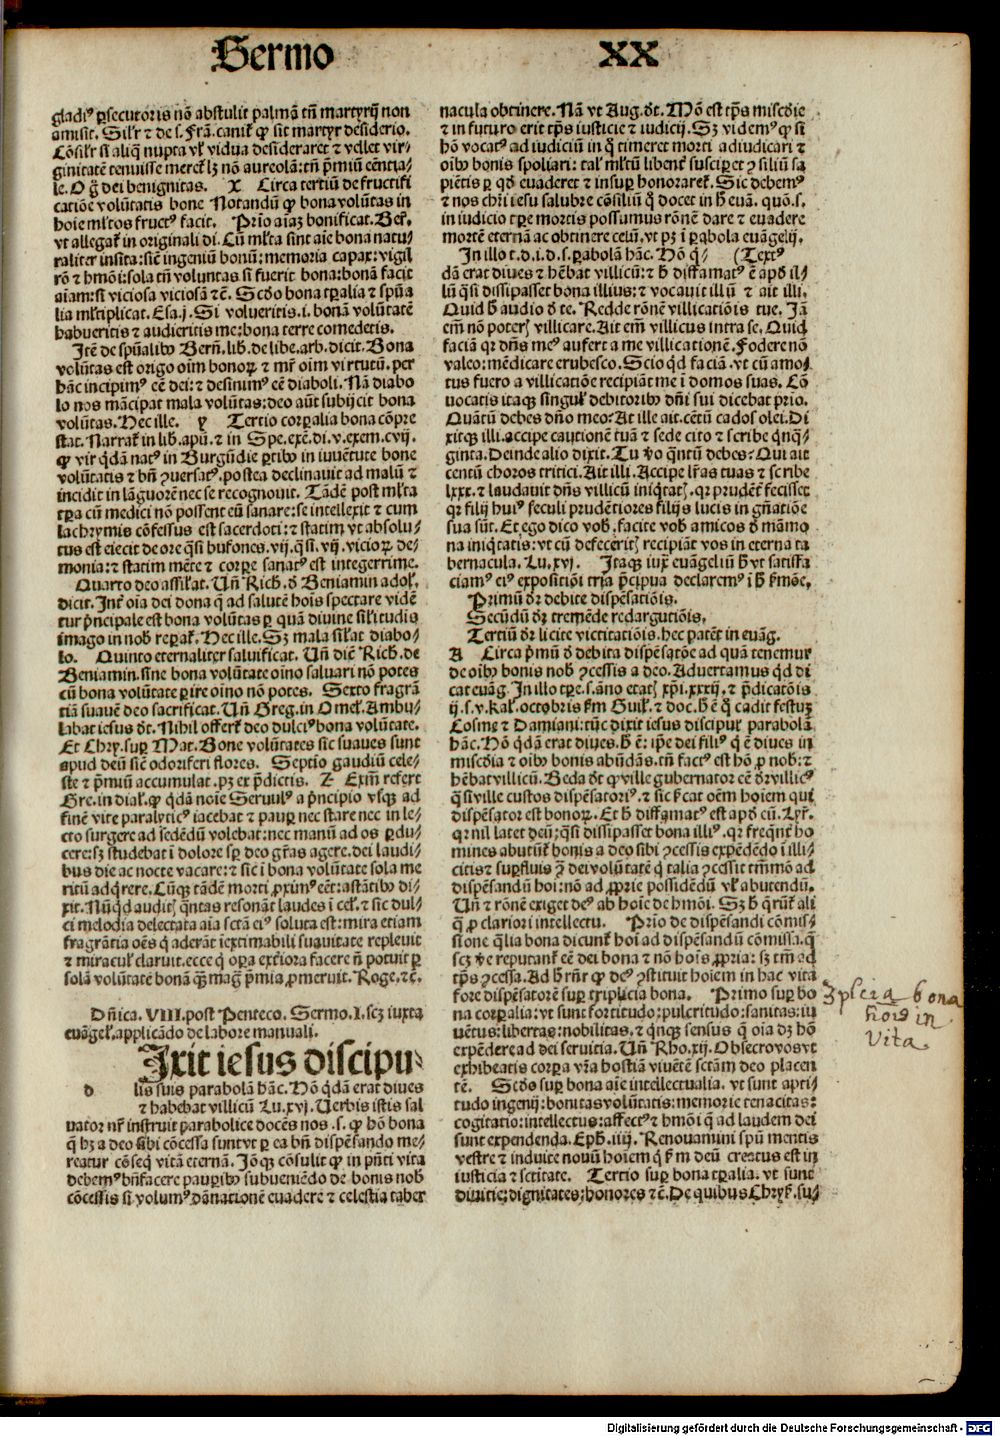 Sermo XX
gladiꝰ ꝑsecutoris nō abstulit palmā tn̄ martyrij non
amisit. Sil'r ⁊ de s. Frā. canit̉ ꝙ sit martyr desiderio.
Cōsil'r si aliq̄ nupta vl' vidua desideraret ⁊ vellet vir⸗
ginitatē tenuisse meret̉ lꝫ nō aureolā: tn̄ p̄miū cēntia⸗
le. O g̊ dei benignitas. X Circa tertiū de fructifi
catiōe volūtatis bone Notandū ꝙ bona volūtas in
hoīe ml'tos fructꝰ facit. Prīo aīaꝫ bonificat. Ber.
vt allegat̉ in originali di. Cū ml'ta sint aīe bona natu⸗
raliter insita: sicē ingeniū bonū: memoria capax: vigil
rō ⁊ hmōi: sola tn̄ voluntas si fuerit bona: bonā facit
aīam: si viciosa viciosā ⁊c̄. Scd̄o bona tp̄alia ⁊ spūa
lia ml'tiplicat. Esa. j. Si volueritis .i. bonā volūtatē
habueritis ⁊ audieritis me: bona terre comedetis.
Itē de spūalibꝰ Bern̄. lib. de libe. arb. dicit. Bona
volūtas est origo oīm bonoꝝ ⁊ mr̄ oīm virtutū. per
hāc incipimꝰ eē dei: ⁊ desinimꝰ eē diaboli. Nā diabo
lo nos mācipat mala volūtas: deo aūt subijcit bona
voluntas. Hec ille. Y Tertio corꝑalia bona cōpre
stat. Narrat̉ in lib. apū. ⁊ in Spe. exē. di. v. exem. cvij.
ꝙ vir q̄dā natꝰ in Burgūdie ꝑtibꝰ in iuuētute bone
volūtatis ⁊ bn̄ ꝯuersatꝰ. postea declinauit ad malū ⁊
incidit in lāguorē nec se recognouit. Tādē post ml'ta
tꝑa cū medici nō possent eū sanare: se intellexit ⁊ cum
lachrymis cōfessus est sacerdoti: ⁊ statim vt absolu⸗
tus est eiecit de ore q̄si bufones .vij. q̄si .vij. vicioꝝ de⸗
monia: ⁊ statim mēte ⁊ corꝑe sanatꝰ est integerrime.
Quarto deo assil'at. Un̄ Rich. d̄ Beniamin adol'.
dicit. Int̉ oīa dei dona q̄ ad salutē hoīs spectare vidē
tur p̄ncipale est bona volūtas ꝑ quā diuine sil'itudīs
imago in nob reꝑat̉. Hec ille. Sꝫ mala sil'at diabo⸗
lo. Quinto eternaliter saluificat. Un̄ diē Rich. de
Beniamin. sine bona volūtate oīno saluari nō potes
cū bona volūtate ꝑire oīno nō potes. Sexto fragrā
tiā suauē deo sacrificat. Un̄ Greg. in Omel'. Ambu⸗
labat iesus dt̄. Nihil offert̉ deo dulciꝰ bona volūtate.
Et Chry. suꝑ Mat. Bone volūtates sic suaues sunt
apud deū sicē odoriferi flores. Septio gaudiū cele⸗
ste ⁊ p̄miū accumulat. pꝫ ex p̄dictis. Z Exm̄ refert
Gre. in dial'. ꝙ q̄dā noīe Seruulꝰ a p̄ncipio vsqꝫ ad
finē vite paralyticꝰ iacebat ⁊ pauꝑ nec stare nec in le⸗
cto surgere ad sedēdū volebat: nec manū ad os ꝑdu⸗
cere: sꝫ studebat ī dolore sꝑ deo gr̄as agere. dei laudi⸗
bus die ac nocte vacare: ⁊ sicē ī bona volūtate sola me
ritū adq̄rere. Cūqꝫ tādē morti ꝓximꝰ eēt: astātibꝰ di⸗
xit. Nūqd̄ auditꝭ q̄ntas resonāt laudes ī cel'. ⁊ sic dul⸗
ci melodia delectata aīa sctā eiꝰ soluta est: mira etiam
fragrātia oēs q̄ aderāt iextimabili suauitate repleuit
⁊ miracul' claruit. ecce q̄ oꝑa ext̉iora facere n̄ potuit ꝑ
solā volūtatē bonā q̄ꝫ maḡ p̄mia ꝓmeruit. Roge. ⁊c̄.
Dn̄ica. VIII. post Penteco. Sermo. I. scꝫ iuxta
euāgel'. applicādo de labore manuali.
Dixit iesus discipu⸗
d lis suis parabolā hāc. Hō q̄dā erat diues
⁊ habebat villicū Lu. xvj. Uerbis istis sal
uator nr̄ instruit parabolice docēs nos .s. ꝙ hō bona
q̄ hꝫ a deo sibi cōcessa sunt vt ꝑ ea bn̄ dispēsando me⸗
reatur cōseq̄ vitā eternā. Iōqꝫ cōsulit ꝙ in pn̄ti vita
debemꝰ bn̄facere pauꝑibꝰ subueniēdo de bonis nob
cōcessis si volumꝰ dānationē euadere ⁊ celestia taber
nacula obtinere. Nā vt Aug. dt̄. Mō est tp̄s misc̄die
⁊ in futuro erit tp̄s iusticie ⁊ iudicij. Sꝫ videmꝰ ꝙ si
hō vocatꝰ ad iudiciū in q̊ timeret morti adiudicari ⁊
oībꝰ bonis spoliari: tal' ml'tū libent̉ susciꝑet ꝯsiliū sa
piētis ꝑ qd̄ euaderet ⁊ insuꝑ honoraret̉. Sic debemꝰ
⁊ nos chr̄i iesu salubre cōsiliū q̄ docet in h̄ euā. quō .s.
in iudicio tꝑe mortis possumus rōnē dare ⁊ euadere
mortē eternā ac obtinere celū. vt pꝫ ī ꝑabola euāgelij.
In illo t. d. i. d. s. ꝑabolā hāc. Hō q̄⸗ (Textꝰ
dā erat diues ⁊ hēbat villicū: ⁊ h̄ diffamatꝰ ē apd̄ il⸗
lū q̄si dissipasset bona illius: ⁊ vocauit illū ⁊ ait illi.
Quid h̄ audio d̄ te. Redde rōnē villicatiōis tue. Iā
em̄ nō poteris villicare. Ait em̄ villicus intra se. Quid
faciā qr̄ dn̄s meꝰ aufert a me villicationē. Fodere nō
valeo: mēdicare erubesco. Scio qd̄ faciā. vt cū amo⸗
tus fuero a villicatiōe recipiāt me ī domos suas. Cō
uocatis itaqꝫ singul' debitoribꝰ dn̄i sui dicebat prīo.
Quātū debes dn̄o meo: At ille ait. cētū cados olei. Di
xitqꝫ illi. accipe cautionē tuā ⁊ sede cito ⁊ scribe q̄nq̄⸗
ginta. Deinde alio dixit. Tu ṽo q̄ntū debes: Qui ait
centū choros tritici. Ait illi. Accipe lr̄as tuas ⁊ scribe
lxxx. ⁊ laudauit dn̄s villicū iniq̄tatꝭ. qr̄ prudēt̉ fecisset
qr̄ filij huiꝰ seculi prudētiores filijs lucis in gn̄atiōe
sua sūt. Et ego dico vob̄. facite vob̄ amicos d̄ māmo
na iniq̄tatis: vt cū defecēritꝭ recipiāt vos in eterna ta
bernacula. Lu. xvj. Itaqꝫ iux̄ euāgeliū h̄ vt satisfa
ciamꝰ eiꝰ expositiōi tria p̄cipua declaremꝰ ī h̄ ẜmōe.
Primū dr̄ debite dispēsatiōis.
Secūdū dr̄ tremēde redargutiōis.
Tertiū dr̄ licite victitatiōis. hec patēt in euāg.
A Circa p̄mū d̄ debita dispēsatōe ad quā tenemur
de oībꝰ bonis nob̄ ꝯcessis a deo. Aduertamus qd̄ di
cat euāg. In illo tꝑe. s. āno etatꝭ xp̄i .xxxij. ⁊ p̄dicatōis
ij. s. v. kal'. octobris ẜm Guil'. ⁊ doc. h̄ ē q̊ cadit festuꝫ
Cosme ⁊ Damiani: tūc dixit iesus discipul' parabolā
hāc. Hō q̄dā erat diues. h̄ ē: ip̄e dei filiꝰ q̄ ē diues in
misc̄dia ⁊ oībꝰ bonis abūdās. tn̄ factꝰ est hō ꝓ nob̄: ⁊
hēbat villicū. Beda dt̄ ꝙ ville gubernator eē dr̄ villicꝰ
q̄si ville custos dispēsatoriꝰ. ⁊ sic ẜcat oēm hoīem qui
dispēsator est bonoꝝ. Et h̄ diffamatꝰ est apd̄ eū. Lyr̄.
qr̄ nil latet deū; q̄si dissipasset bona illiꝰ. qr̄ freq̄nt̉ ho
mines abutūt̉ bonis a deo sibi ꝯcessis expēdēdo ī illi⸗
citis ⁊ suꝑfluis ꝯ̄ dei volūtatē q̄ talia ꝯcessit tm̄mō ad
dispēsandū hoī: nō ad ꝓprie possidēdū vl' abutendū.
Un̄ ⁊ rōnē exiget deꝰ ab hoīe de hmōi. Sꝫ h̄ q̄rūt̉ ali
q̄ ꝓ clariori intellectu. Prīo de dispēsandi cōmis⸗
sione q̄lia bona dicunt̉ hoī ad dispēsandū cōmissa. q̄
scꝫ ṽe reputant̉ eē dei bona ⁊ nō hoīs ꝓpria: sꝫ tm̄ ad
tp̄s ꝯcessa. Ad h̄ rn̄t̉ ꝙ deꝰ ꝯstituit hoīem in hac vita
fore dispēsatorē suꝑ triplicia bona. Primo suꝑ bo
na corꝑalia: vt sunt fortitudo: pulcritudo: sanitas: iu
uētus: libertas: nobilitas. ⁊ q̄nqꝫ sensus q̄ oīa dꝫ hō
expēdere ad dei seruitia. Un̄ Rho. xij. Obsecro vos vt
exhibeatis corꝑa vr̄a hostiā viuētē sctām deo placen
tē. Scd̄o suꝑ bona aīe intellectualia. vt sunt apti⸗
tudo ingenij: bonitas volūtatis: memorie tenacitas:
cogitatio: intellectus: affectꝰ ⁊ hmōi q̄ ad laudem dei
sunt expendenda. Eph. iiij. Renouamini spū mentis
vestre ⁊ induite nouū hoīem q̄ ẜm deū creatus est in
iusticia ⁊ sctītate. Tertio suꝑ bona tꝑalia. vt sunt
diuitie: dignitates: honores ⁊c̄. De quibus Chryꝭ. su⸗
3plicia bona
hoīs in
vita
Digitalisierung gefördert durch die Deutsche Forschungsgemeinschaft - DFG